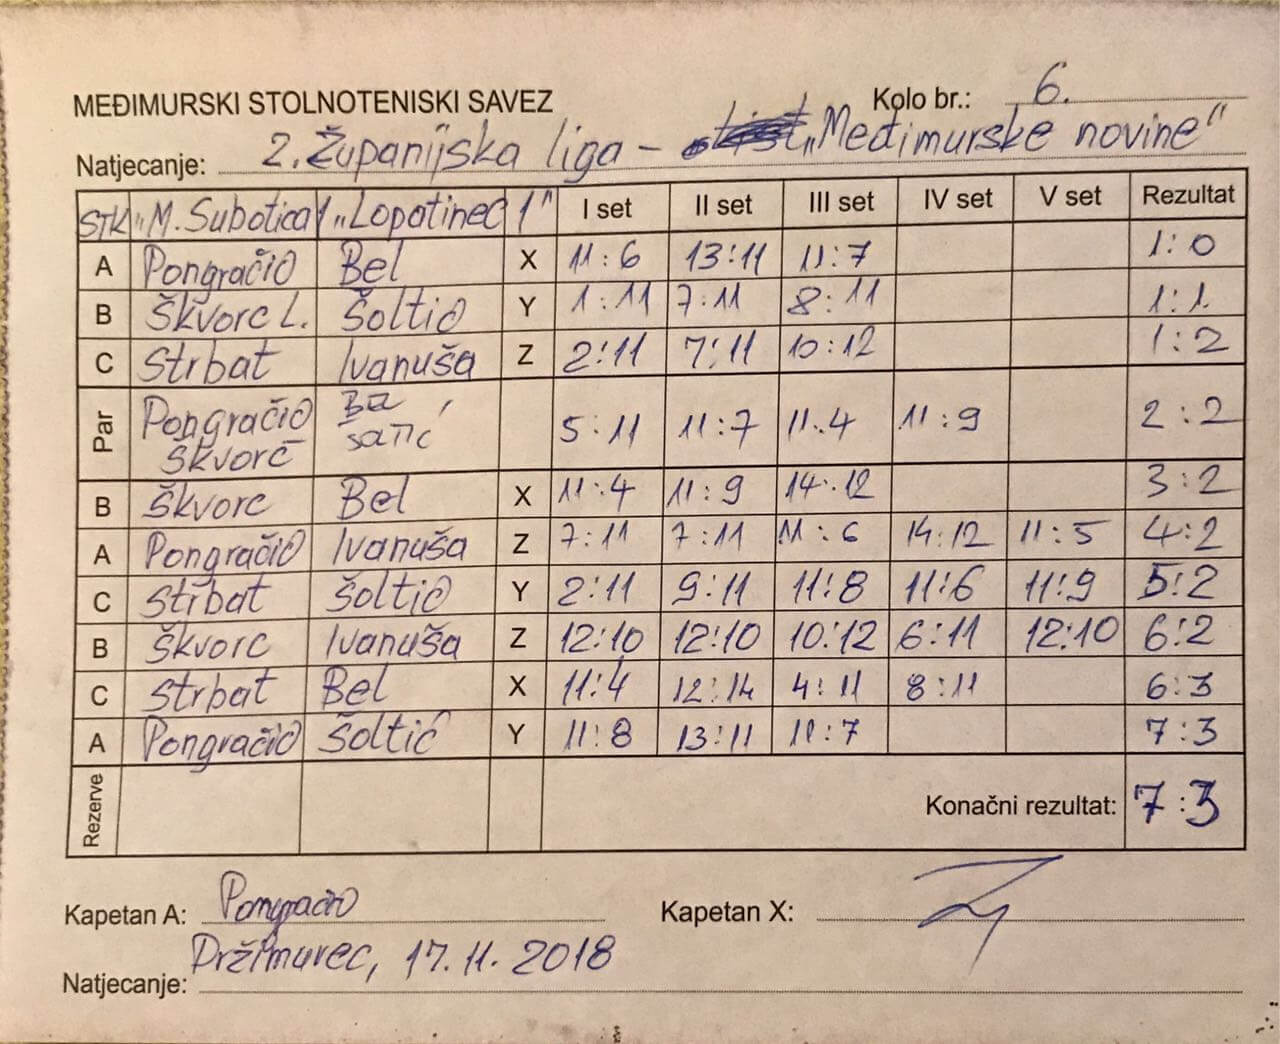 MEĐIMURSKI STOLNOTENISKI SAVEZ Kolo br.: 6.
Natjecanje: 2. Županijska liga - „Međimurske novine"
STK „M. Subotica 1 „Lopatinec 1" I set II set III set IV set V set Rezultat
A Pongračić Bel X 11:6 13:11 11:7 1:0
B Škvorc L. Šoltić Y 1:11 7:11 8:11 1:1
C Strbat Ivanuša Z 2:11 7:11 10:12 1:2
Par Pongračić 5:11 11:7 11:4 11:9 2:2
Škvorc
B Škvorc Bel X 11:4 11:9 14:12 3:2
A Pongračić Ivanuša Z 7:11 7:11 11:6 14:12 11:5 4:2
C Strbat Šoltić Y 2:11 9:11 11:8 11:6 11:9 5:2
B Škvorc Ivanuša Z 12:10 12:10 10:12 6:11 12:10 6:2
C Strbat Bel X 11:4 12:14 4:11 8:11 6:3
A Pongračić Šoltić Y 11:8 13:11 11:7 7:3
Rezerve Konačni rezultat: 7:3
Kapetan A: Pongračić Kapetan X:
Držimurec, 17.11.2018
Natjecanje: